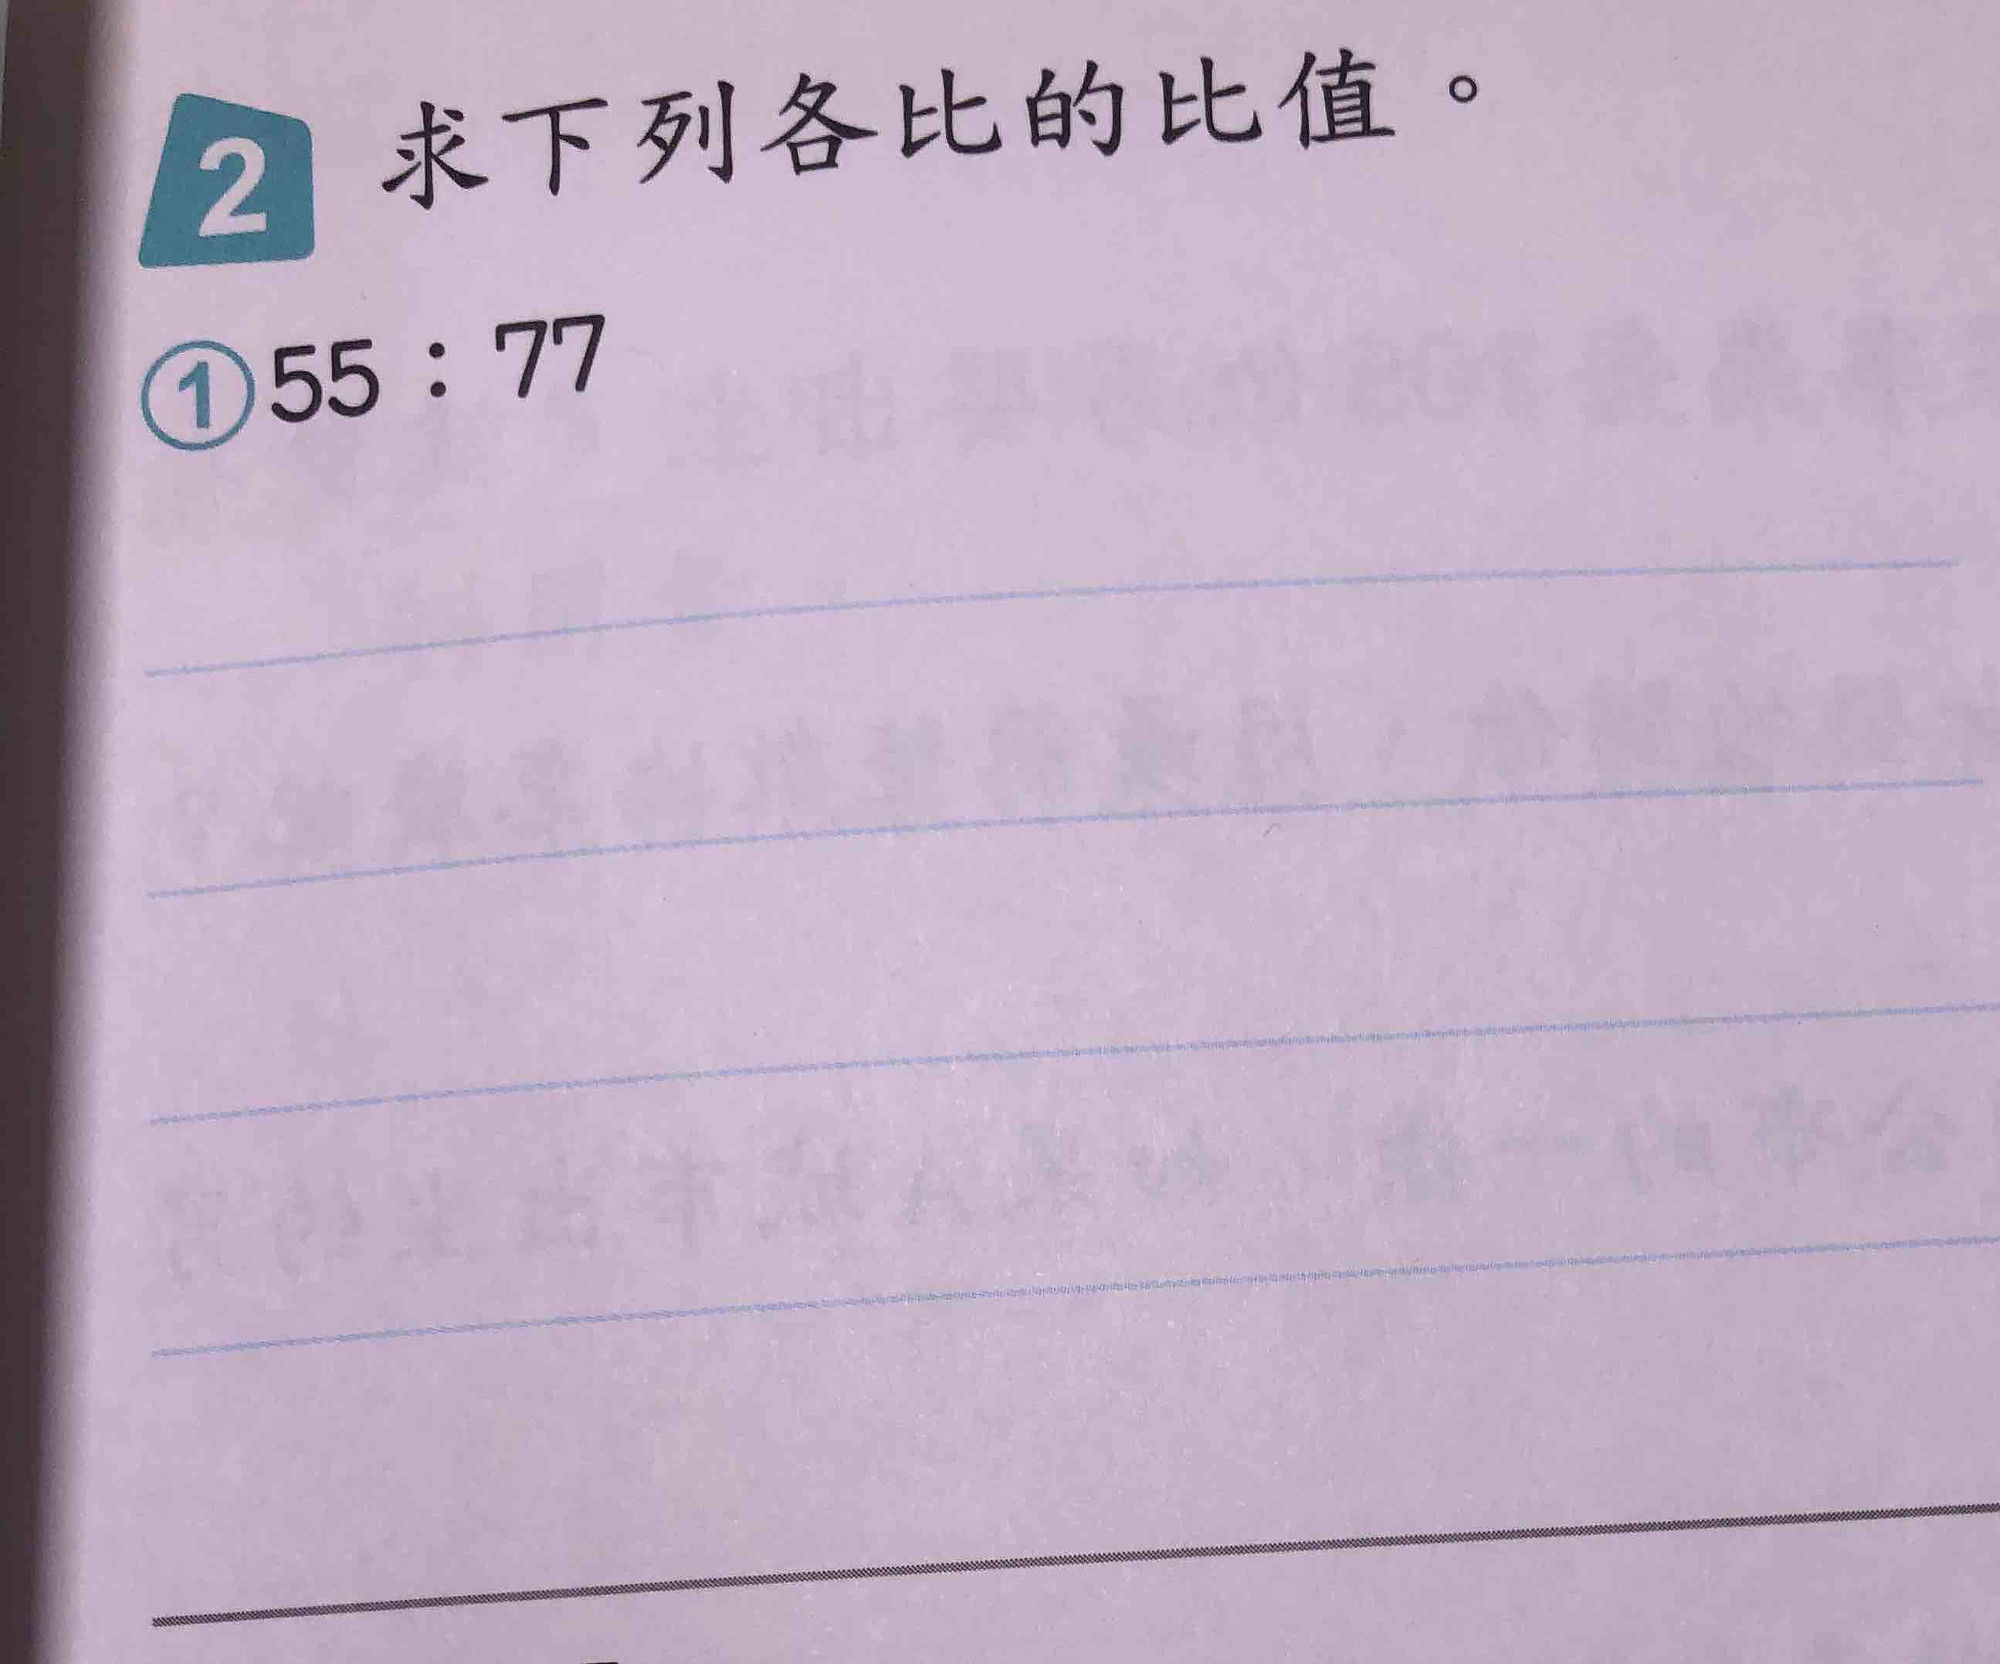 2 求下列各比的比值。
①55：77